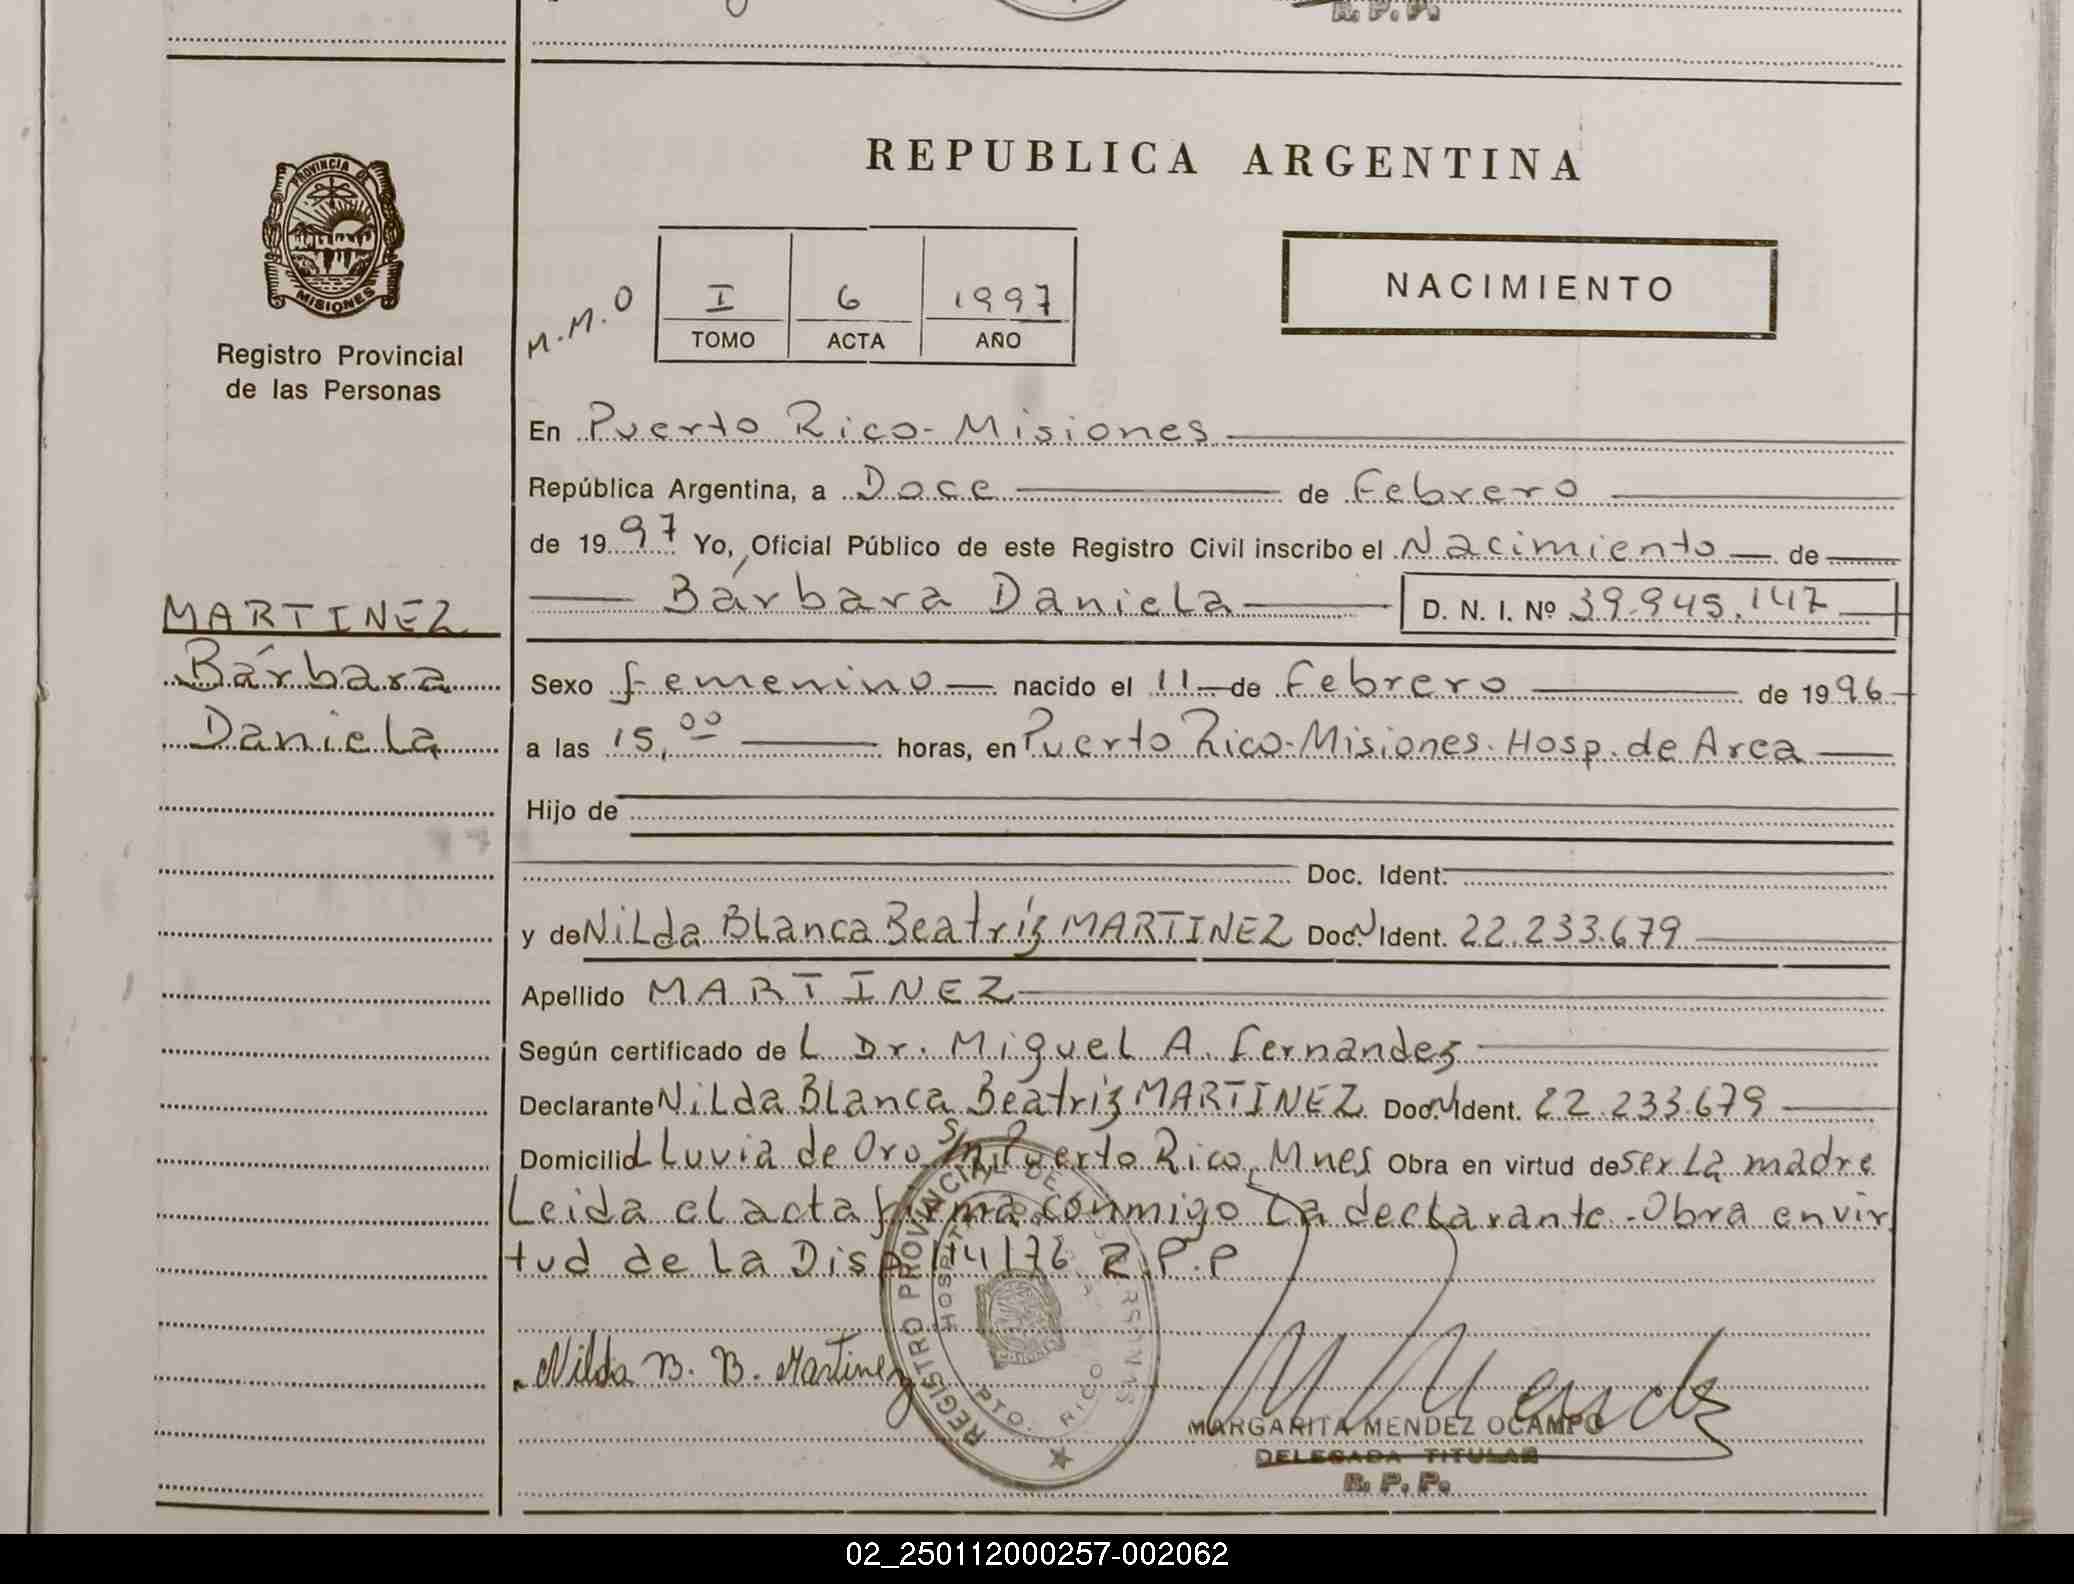 R. P. P.
REPUBLICA ARGENTINA
PROVINCIA DE
MISIONES
Registro Provincial
de las Personas
M.M.O
I 6 1997
TOMO ACTA AÑO
NACIMIENTO
En Puerto Rico - Misiones
República Argentina, a Doce de Febrero
de 1997 Yo, Oficial Público de este Registro Civil inscribo el Nacimiento de
Bárbara Daniela D. N. I. Nº 39.945.147
MARTINEZ
Bárbara
Daniela
Sexo femenino nacido el 11 de Febrero de 1996
a las 15,00 horas, en Puerto Rico - Misiones. Hosp. de Area
Hijo de
Doc. Ident.
y de Nilda Blanca Beatríz MARTINEZ Doc. Ident. 22.233.679
Apellido MARTINEZ
Según certificado de L Dr. Miguel A. Fernandez
Declarante Nilda Blanca Beatríz MARTINEZ Doc. Ident. 22.233.679
Domicilio Lluvia de Oro s/n Puerto Rico, Mnes Obra en virtud de ser la madre
Leida el acta firma conmigo la declarante - Obra en vir
tud de la Disp. 14/76 R.P.P
Nilda B. B. Martinez
REGISTRO PROVINCIAL DE LAS PERSONAS
HOSPITAL
PTO. RICO
MARGARITA MENDEZ OCAMPO
DELEGADA TITULAR
R. P. P.
02_250112000257-002062